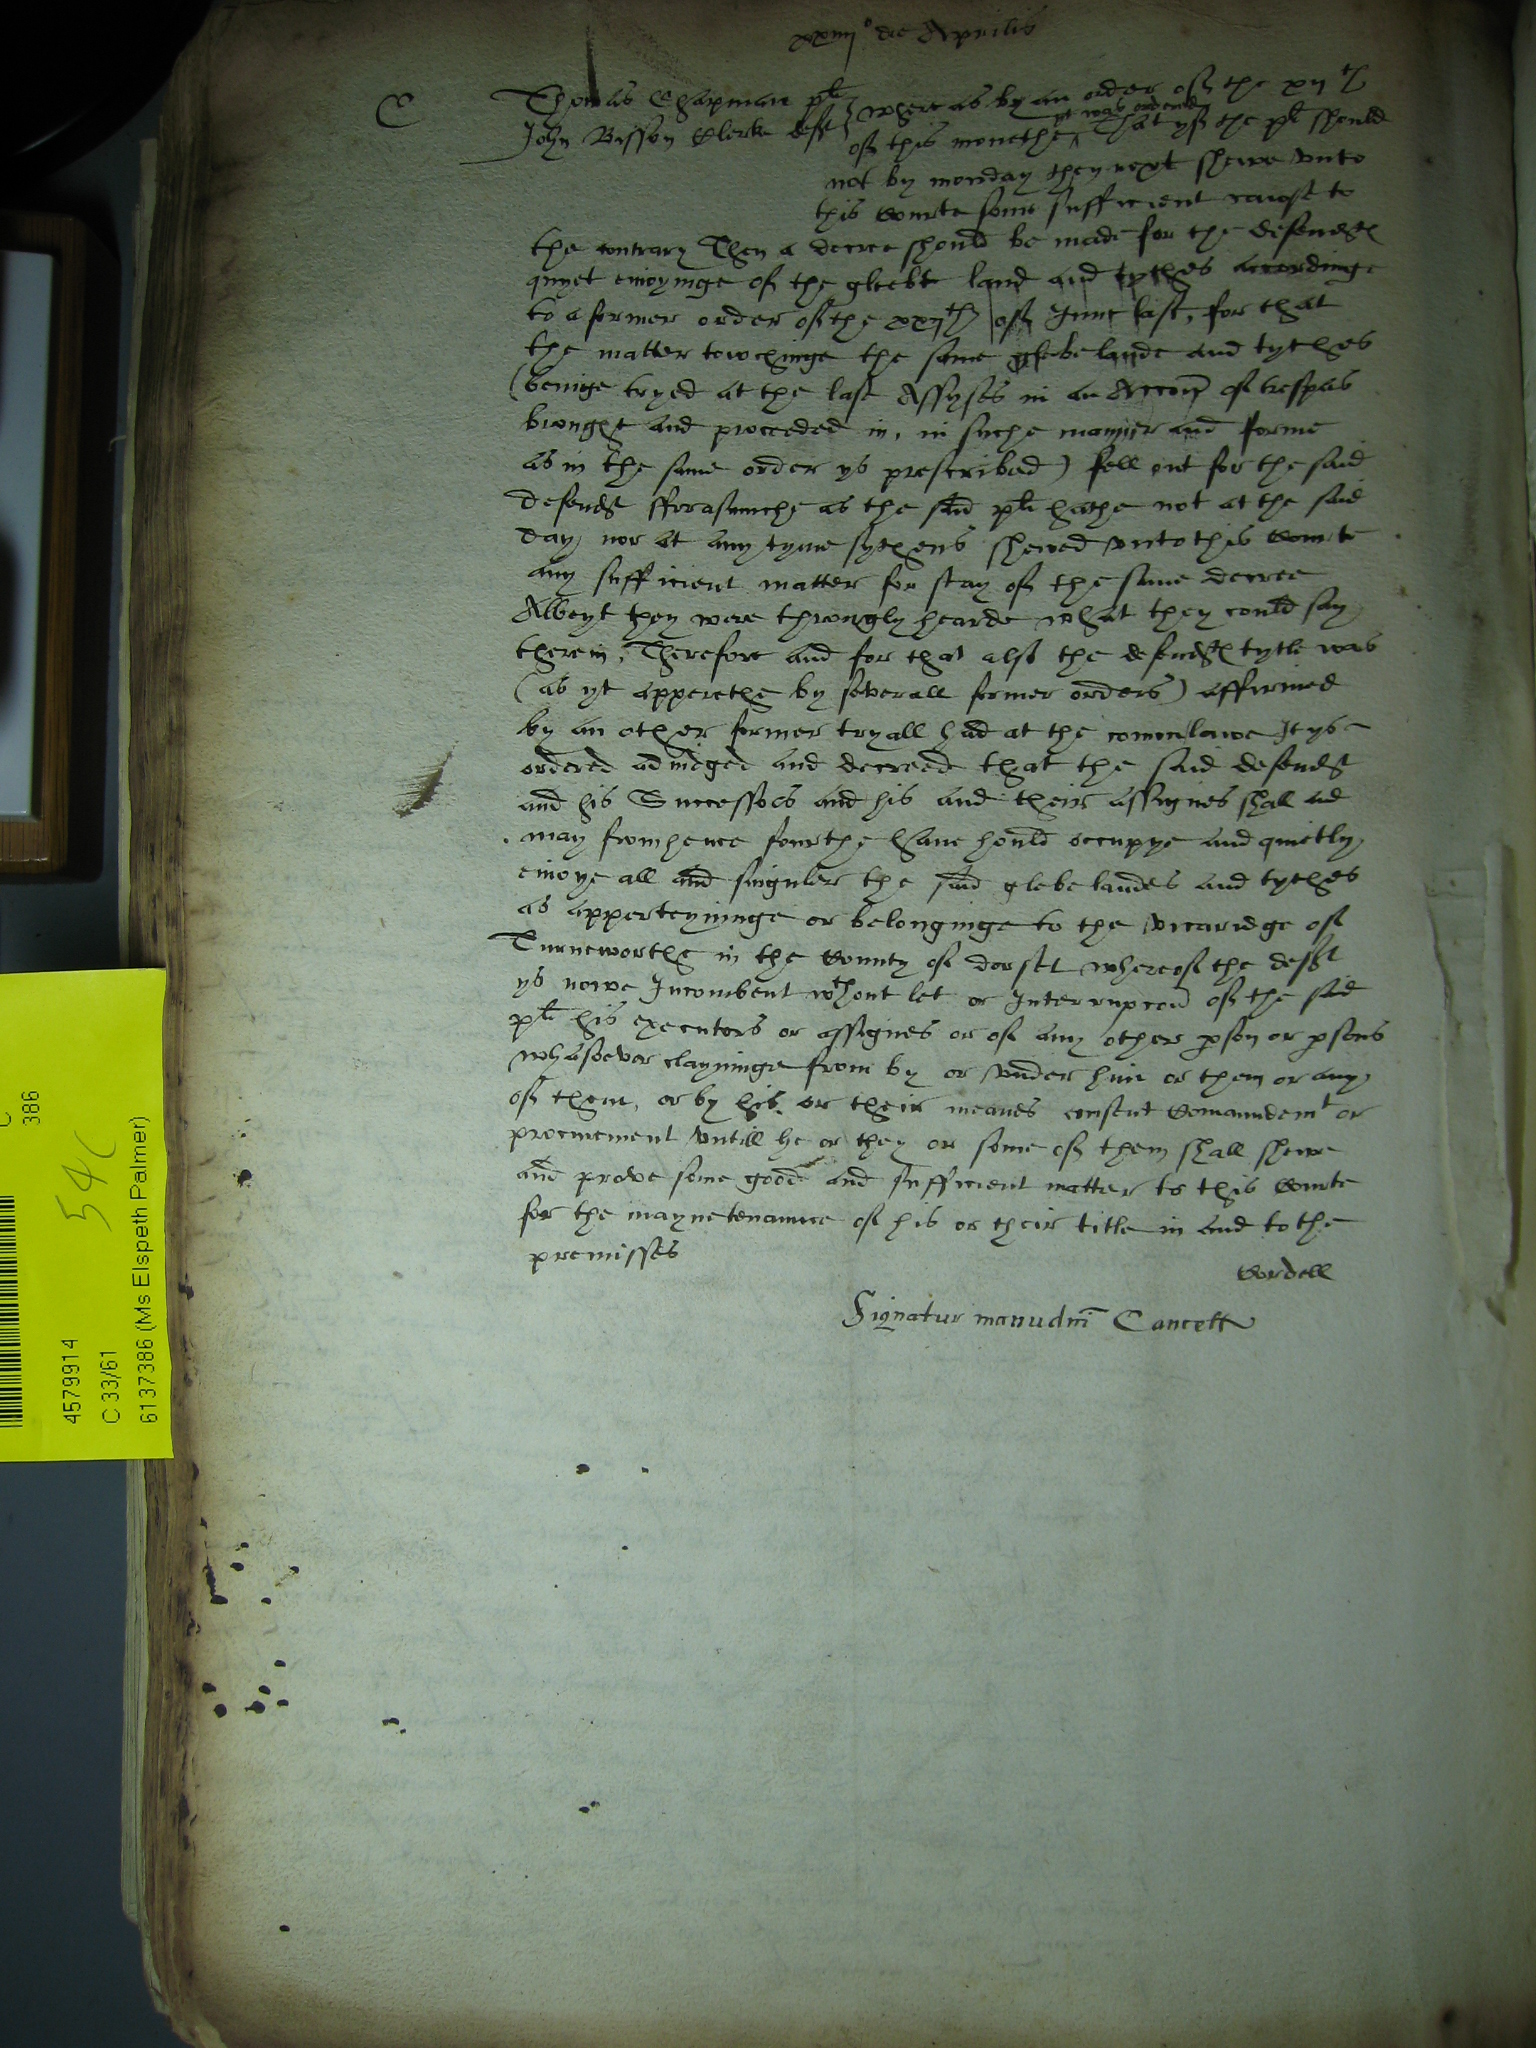 xxiiij° die Aprilis
C
Thomas Chapman pl
John Bisson Clerke deft
Whereas by an order of the xijth
of this monethe yt was ordered That yf the pl should
not by monday then next shewe vnto
this Courte some sufficient cause to
the contrary Then a decree should be made for the defendtes
quyet enioyinge of the gleebe land and tythes accordinge
to a former order of the xxijth of June last, for that
the matter towchinge the same glebe lande and tythes
(beinge tryed at the last Assyses in an Accion of trespas
brought and proceeded in, in suche manner and forme
as in the same order ys prescribed) fell out for the said
defendt fforasmuche as the said pl hathe not at the said
day, nor at any tyme sythens shewed vnto this Courte
any sufficient matter for stay of the same decree
Albeyt they were throughly hearde what they could say
therein, Therefore and for that also the defendtes tytle was
(as yt apperethe by severall former orders) affirmed
by an other former tryall had at the comon lawe It ys
ordered adiudged and decreed that the said defendt
and his Successors and his and their assignes shall and
may from hence fourthe have hould occupye and quietly
enioye all and singuler the said glebe landes and tythes
as apperteyninge or belonginge to the vicaridge of
Turneworthe in the County of dorset whereof the deft
ys nowe Incombent wthout let or Interrupcon of the said
pl his executors or assignes or of any other pson or psons
whasoever clayminge from by or vnder him or them or any
of them, or by his or their meanes consent Comaundemt or
procurement vntill he or they or some of them shall shewe
and prove some good and sufficient matter to this Courte
for the maynetenaunce of his or their title in and to the
premisses
Cordell
Signatur manu dni Cancell
386
54C
4579914
C 33/61
6137386 (Ms Elspeth Palmer)